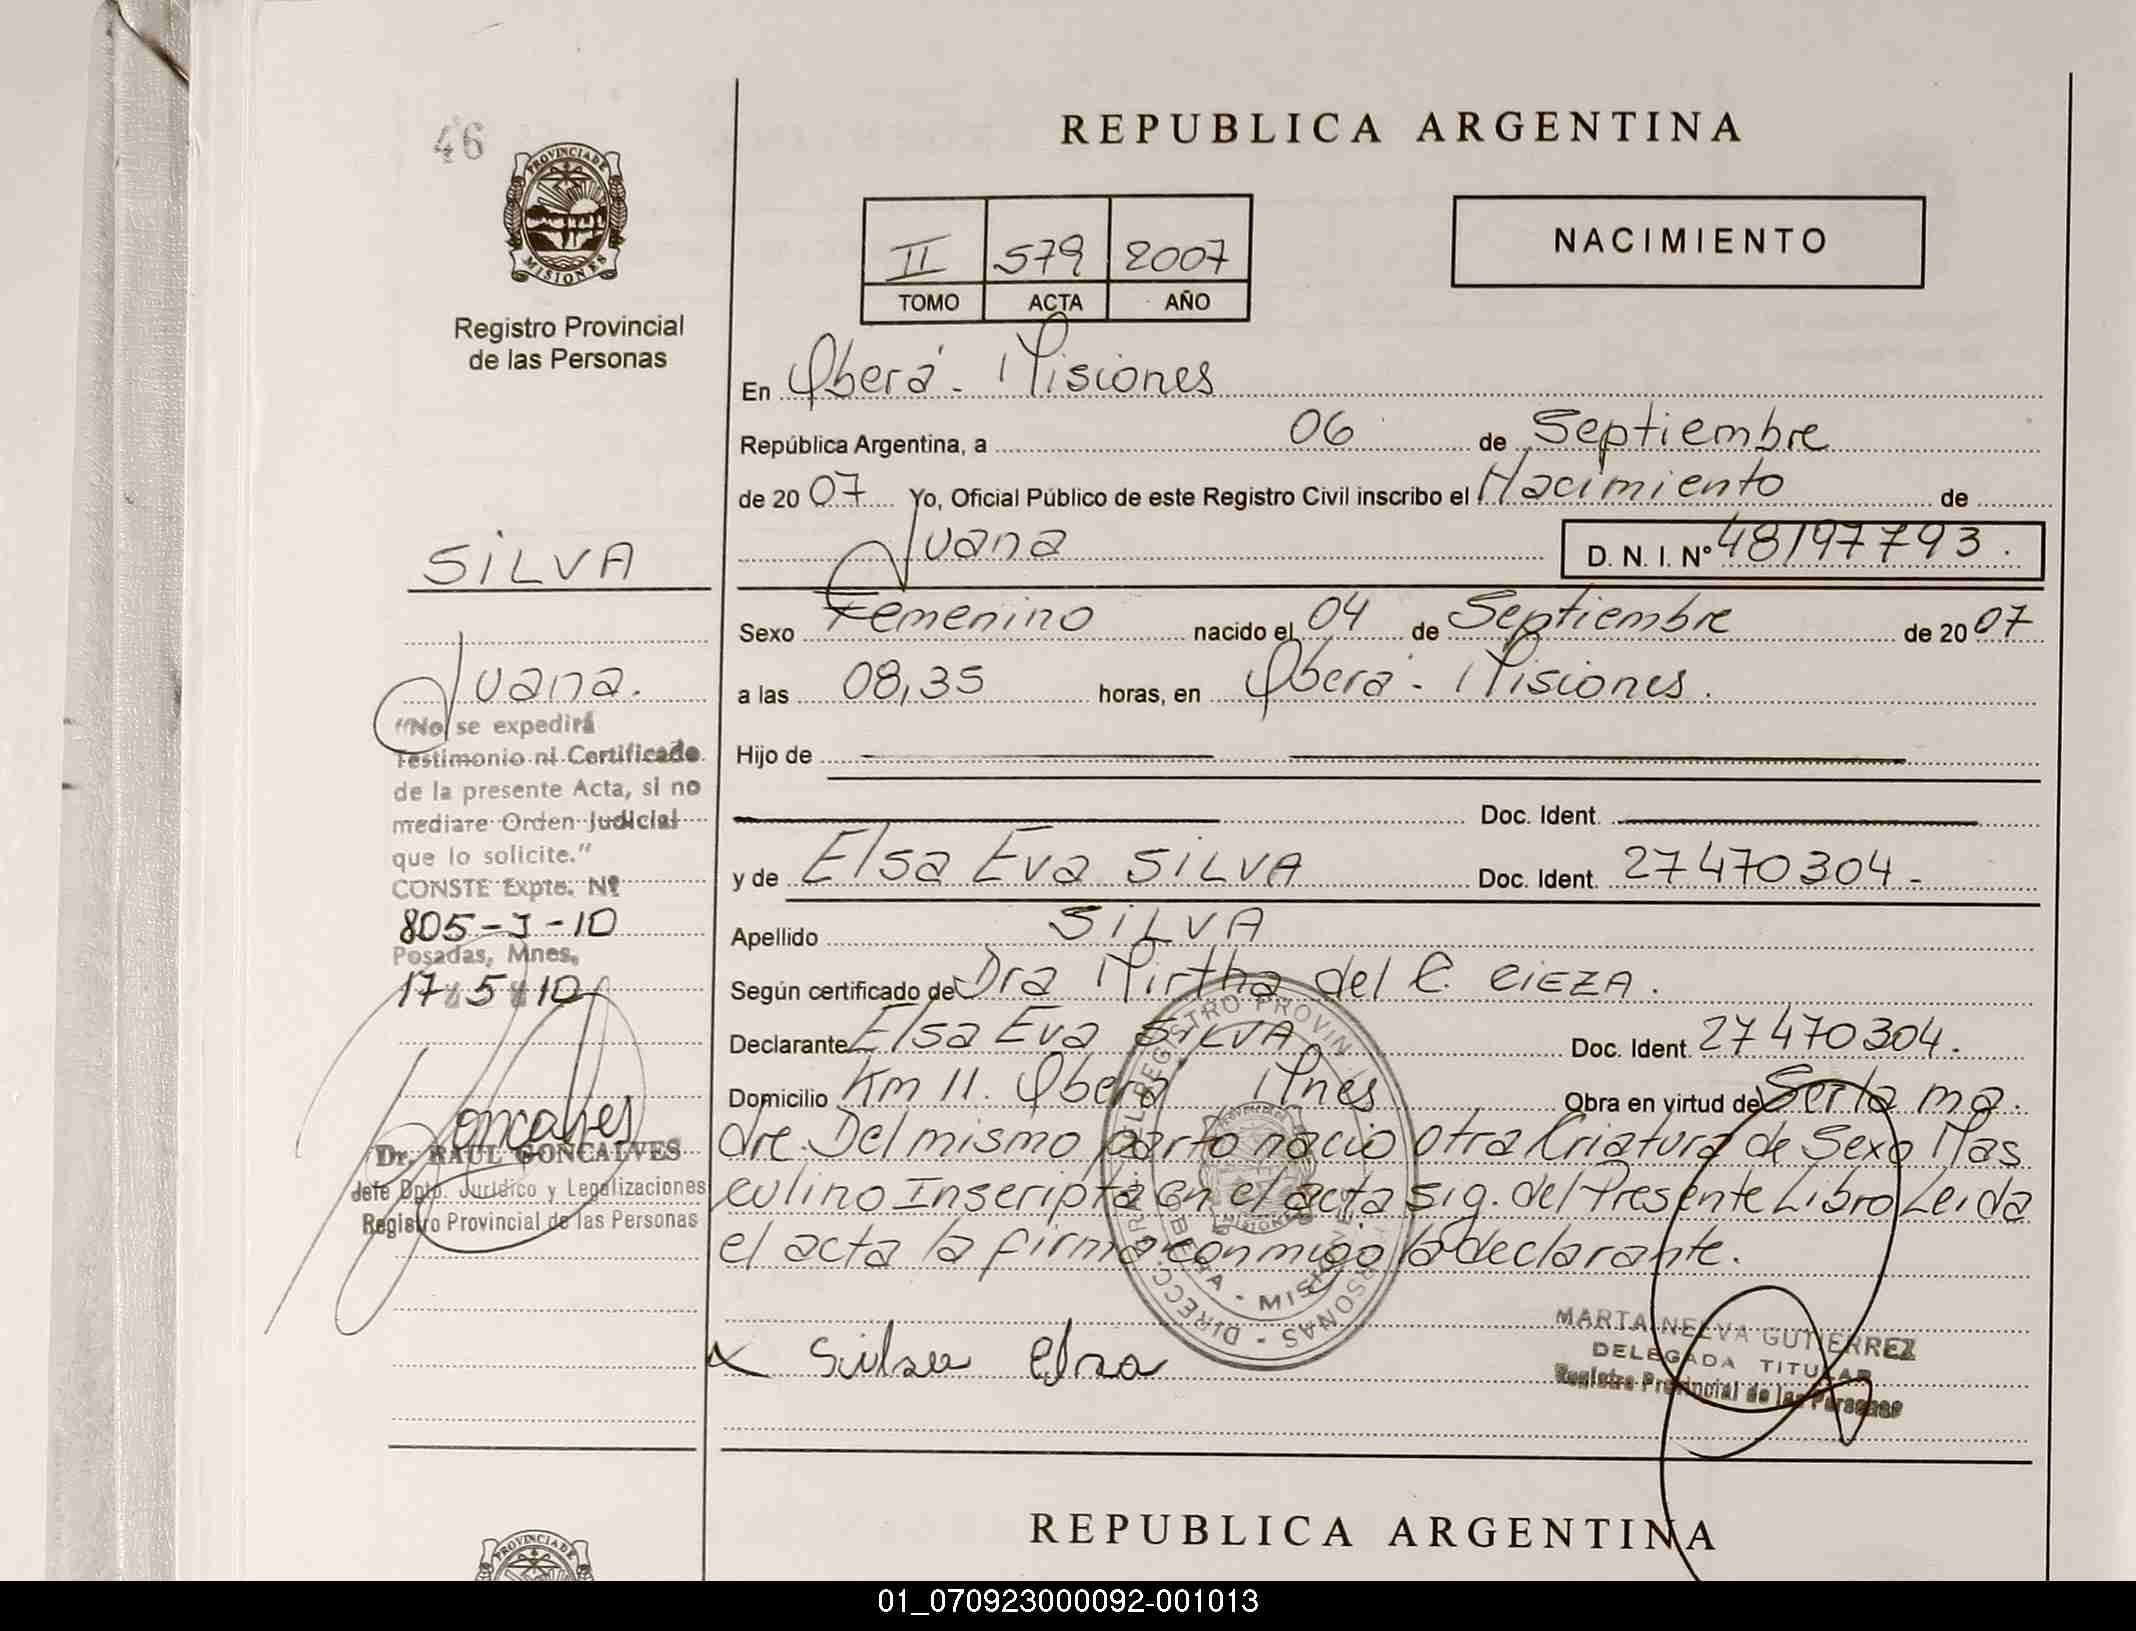 46
PROVINCIA DE
MISIONES
Registro Provincial
de las Personas
SILVA
Juana.
"No se expedirá
Testimonio ni Certificado
de la presente Acta, si no
mediare Orden Judicial
que lo solicite."
CONSTE Expte. Nº
805-J-10
Posadas, Mnes,
17 5 10
Goncalves
Dr. RAUL GONCALVES
Jefe Dpto. Jurídico y Legalizaciones
Registro Provincial de las Personas
REPUBLICA ARGENTINA
II 579 2007
TOMO ACTA AÑO
NACIMIENTO
En Oberá - Misiones
República Argentina, a 06 de Septiembre
de 20 07 Yo, Oficial Público de este Registro Civil inscribo el Nacimiento de
Juana D. N. I. Nº 48197793.
Sexo Femenino nacido el 04 de Septiembre de 20 07
a las 08,35 horas, en Oberá - Misiones.
Hijo de
Doc. Ident.
y de Elsa Eva SILVA Doc. Ident. 27470304-
Apellido SILVA
Según certificado de Dra Mirtha del C. CIEZA.
Declarante Elsa Eva SILVA Doc. Ident. 27470304.
Domicilio Km 11. Oberá Mnes Obra en virtud de Ser la ma.
dre. Del mismo parto nació otra Criatura de Sexo Mas
culino Inscripta en el acta sig. del Presente Libro Leida
el acta la firma conmigo la declarante.
x Silva elsa
MARTA NELVA GUTIERREZ
DELEGADA TITULAR
Registro Provincial de las Personas
PROVINCIA DE
REPUBLICA ARGENTINA
01_070923000092-001013